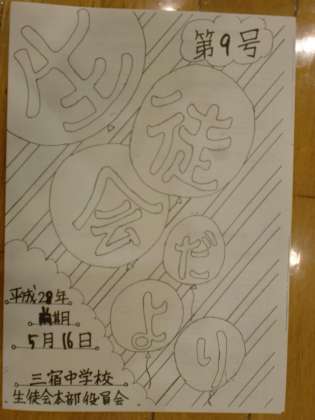 第9号
生徒会だより
平成28年
前期
5月16日
三宿中学校
生徒会本部役員会